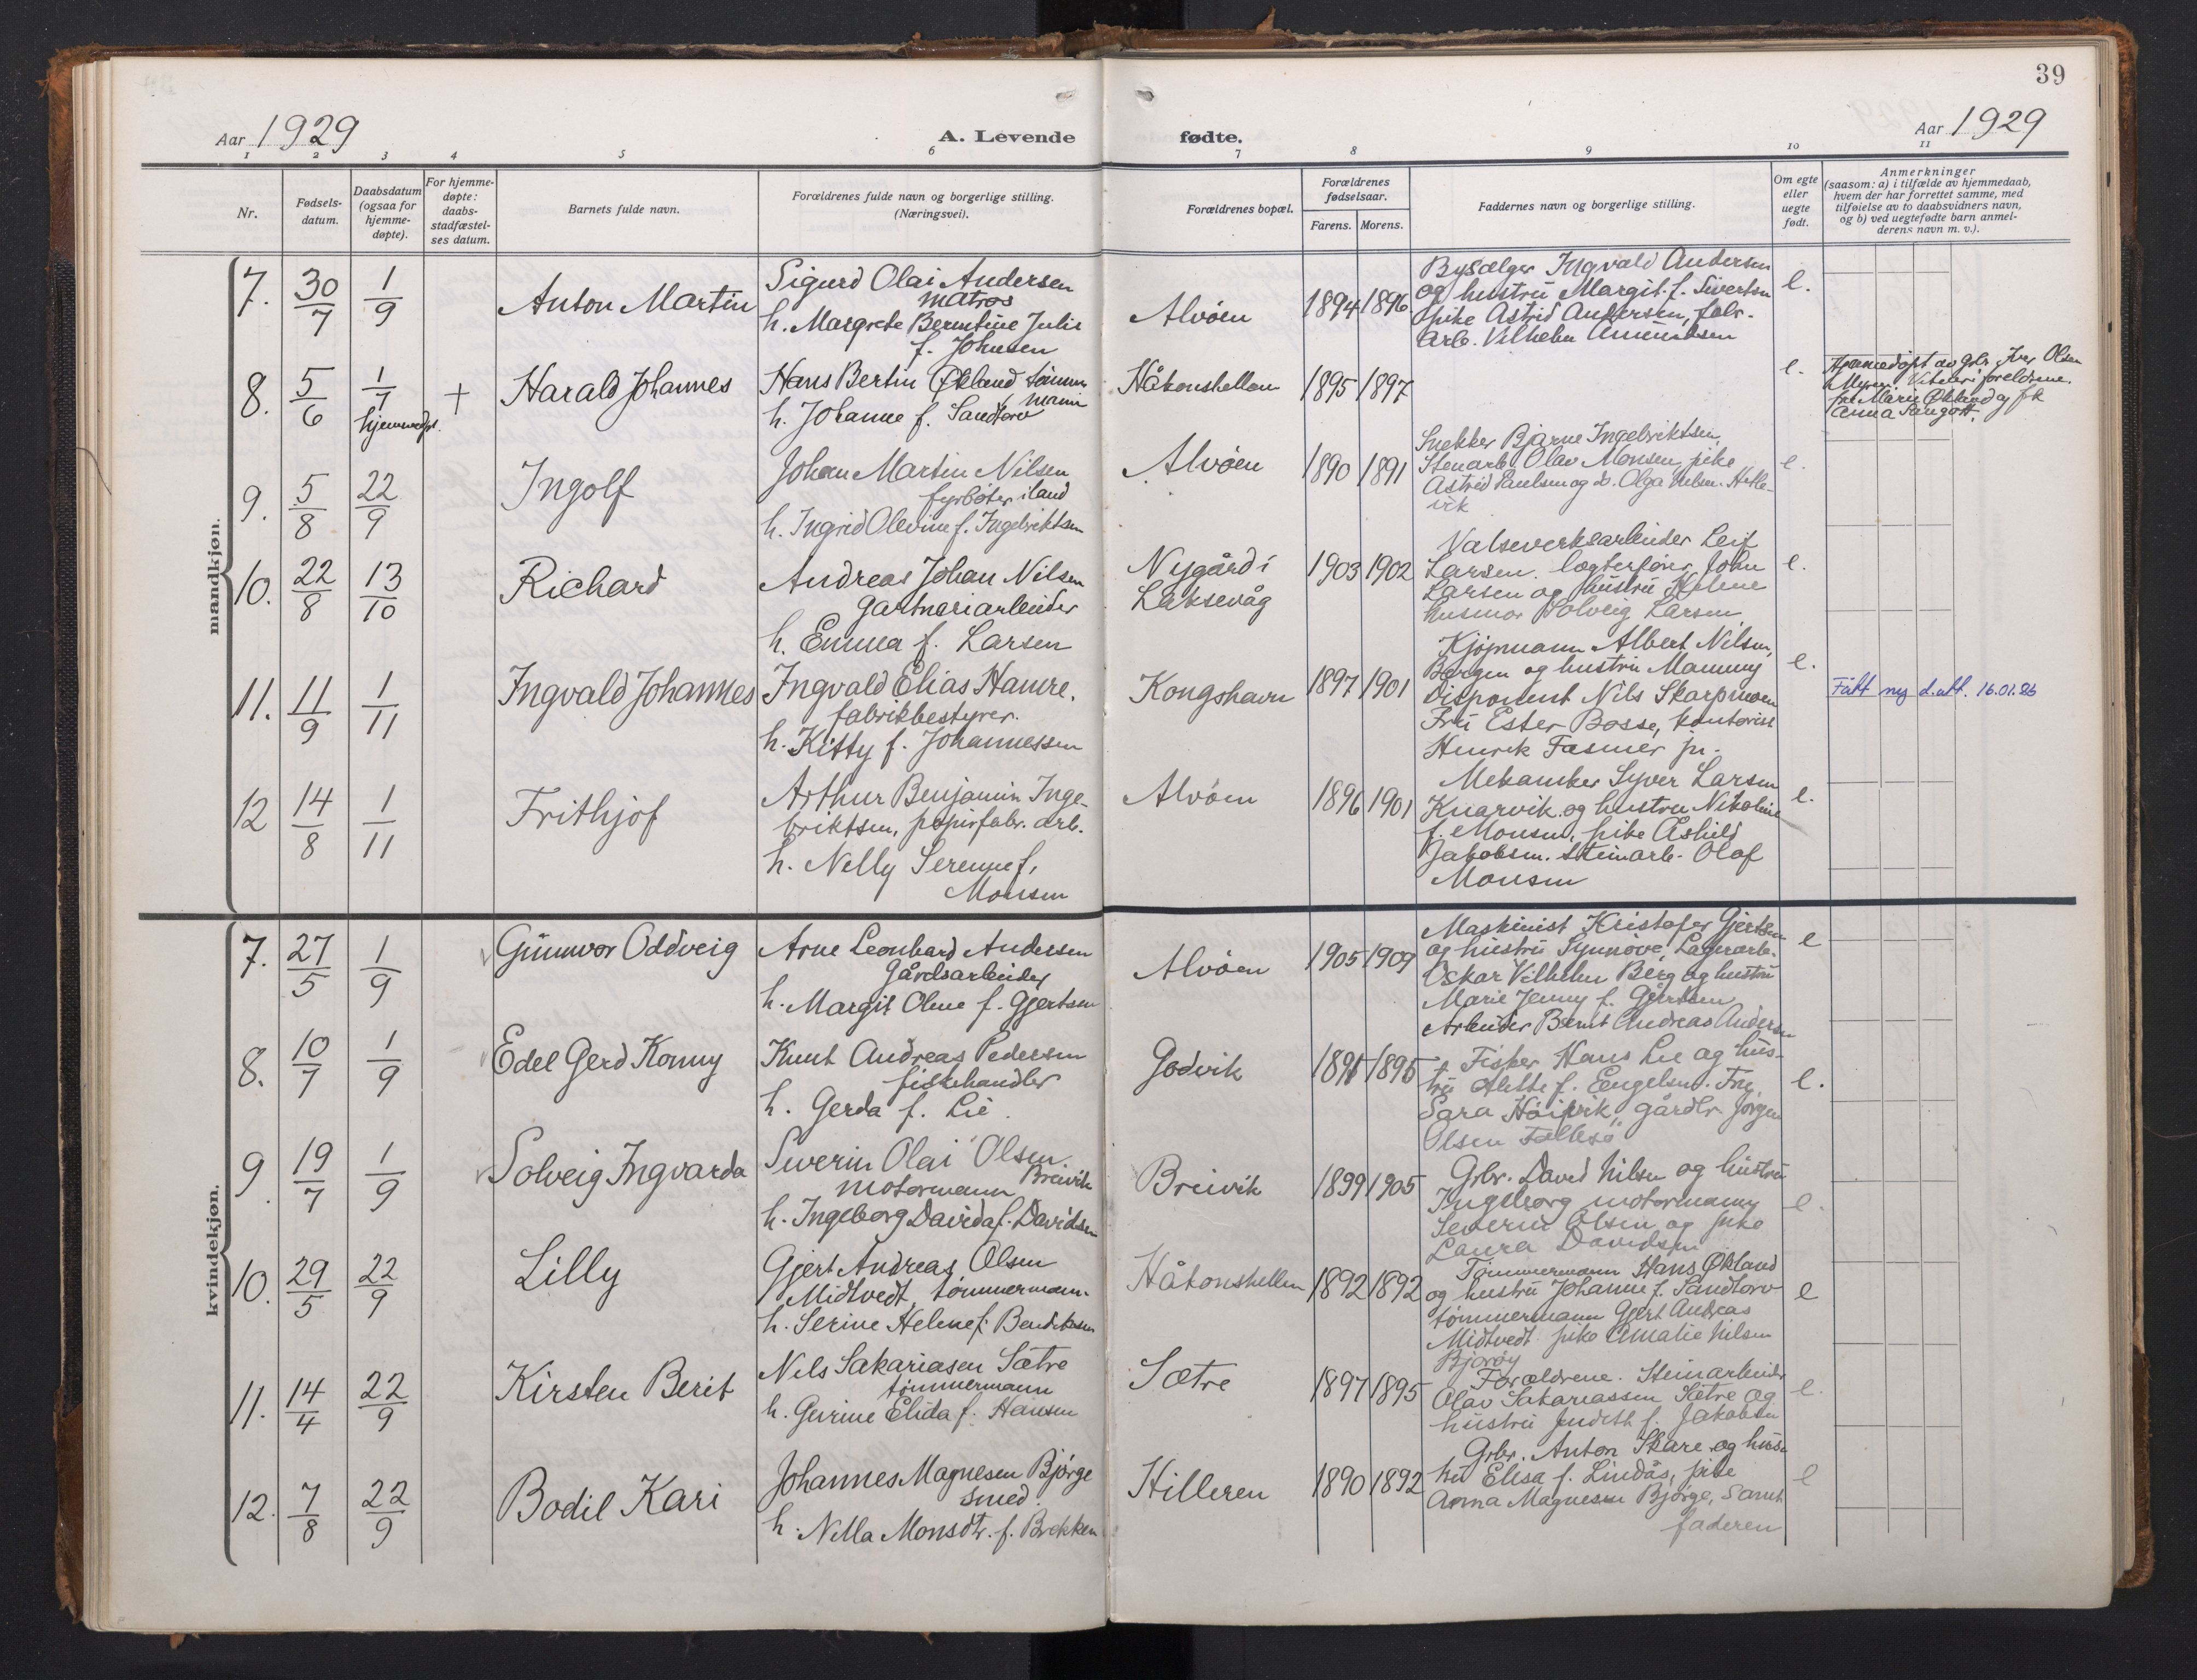 39
Aar 1929
A. Levende fødte.
Aar 1929
1 2 3 4 5 6 7 8 9 10 11
Nr.
Fødsels-
datum.
Daabsdatum
(ogsaa for
hjemme-
døpte).
For hjemme-
døpte:
daabs-
stadfæstel-
ses datum.
Barnets fulde navn.
Forældrenes fulde navn og borgerlige stilling.
(Næringsvei).
Forældrenes bopæl.
Forældrenes
fødselsaar.
Farens. Morens.
Faddernes navn og borgerlige stilling.
Om egte
eller
uegte
født.
Anmerkninger
(saasom: a) i tilfælde av hjemmedaab,
hvem der har forrettet samme, med
tilføielse av to daabsvidners navn,
og b) ved uegtefødte barn anmel-
derens navn m. v.).
mandkjøn.
7. 30/7 1/9 Anton Martin
Sigurd Olai Andersen
matros
h. Margrete Berntine Julie
f. Johnsen
Alvøen 1894 1896
Bysælger Ingvald Andersen
og hustru Margit f. Sivertsen
pike Astrid Andersen, fabr.-
arb. Vilhelm Amundsen
e.
8. 5/6 1/7 hjemmedpt. + Harald Johannes
Hans Bertin Økland tømmer
mann
h. Johanne f. Sandtorv
Håkonshellen 1895 1897
e.
Hjemmedøpt av gbr. Iver Olsen
Myren. Vitner: foreldrene.
frk Marie Økland og frk
Anna
9. 5/8 22/9 Ingolf
Johan Martin Nilsen
fyrbøter iland
h. Ingrid Olevine f. Ingebriktsen
Alvøen 1890 1891
Snekker Bjarne Ingebriktsen,
Stenarb. Olav Monsen, pike
Astrid Paulsen og d. Olga Nilsen. Hetle-
vik
e.
10. 22/8 13/10 Richard
Andreas Johan Nilsen
gartneriarbeider
h. Emma f. Larsen
Nygård i
Laksevåg
1903 1902
Valseverksarbeider Leif
Larsen. lægterfører John
Larsen og hustru Helene
husmor Solveig Larsen
e.
11. 11/9 1/11 Ingvald Johannes
Ingvald Elias Hamre.
fabrikbestyrer.
h. Kitty f. Johannessen
Kongshavn 1897 1901
Kjøpmann Albert Nilsen,
Bergen og hustru Mammy
Disponent Nils Skarpmoen
Fru Ester Bosse, kontorist
Henrik Fasmer jr.
e.
Fått ny d.att. 16.01.86
12 14/8 1/11 Frithjof
Arthur Benjamin Inge-
briktsen, papirfabr. arb.
h. Nelly Serene f.
Monsen
Alvøen 1896 1901
Mekaniker Syver Larsen
Knarvik og hustru Nikoline
f. Monsen, pike Åshild
Jakobsen. Steinarb. Olaf
Monsen
e.
kvindekjøn.
7. 27/5 1/9 Gunnvor Oddveig
Arne Leonhard Andersen
Gårdsarbeider
h. Margit Oline f. Gjertsen
Alvøen 1905 1909
Maskinist Kristofer Gjertsen
og hustru Synnøve, Lagerarb.
Oskar Vilhelm Berg og hustru
Marie Jenny f. Gjertsen
Arbeider Bernt Andreas Andersen
e
8. 10/7 1/9 Edel Gerd Konny
Knut Andreas Pedersen
fiskehandler
h. Gerda f. Lie.
Godvik 1891 1895
Fisker Hans Lie og hus-
tru Alette f. Engelsen. Frk.
Sara Høipvik, gårdbr. Jørgen
Olsen
e.
9. 19/7 1/9 Solveig Ingvarda
Severin Olai Olsen
motormann Breivik
h. Ingeborg Davida f. Davidsen
Breivik 1899 1905
Grbr. David Nilsen og hustru
Ingeborg motormann
Severin Olsen og pike
Laura Davidsen
e.
10. 29/5 22/9 Lilly
Gjert Andreas Olsen
Midtvedt, tømmermann.
h. Serine Helene f. Bendiksen
Håkonshellen 1892 1892
Tømmermann Hans Økland
og hustru Johanne f. Sandtorv
tømmermann Gjert Andreas
Midtvedt pike Amalie Nilsen
Bjorøy
e
11. 14/4 22/9 Kirsten Berit
Nils Sakariasen Sætre
tømmermann
h. Gurine Elida f. Hansen
Sætre 1897 1895
Forældrene. Steinarbeider
Olav Sakariassen Sætre og
hustru Judith f. Jakobsen
e.
12. 7/8 22/9 Bodil Kari
Johannes Magnesen Bjørge
smed.
h. Nilla Monsdtr. f. Brekken
Hilleren 1890 1892
Grbr. Anton Skare og hus-
tru Elisa f. Lindås, pike
Anna Magnesen Bjørge, samt
faderen
e